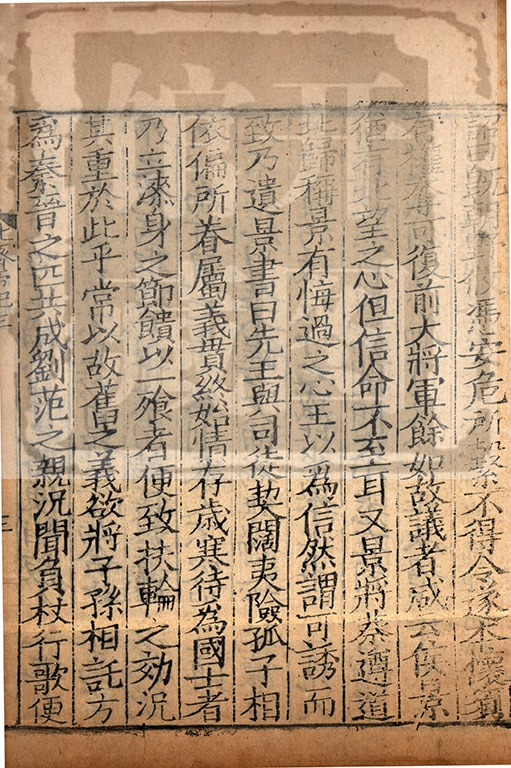 詔曰既朝野攸憑安危所繫不得令遂本懷須
有權奪可復前大將軍餘如故議者咸云侯景
猶有北望之心但信命不至耳又景將蔡遵道
北歸稱景有悔過之心王以爲信然謂可誘而
致乃遺景書曰先王與司徒契闊夷險孤子相
依偏所眷屬義貫終始情存歲寒待爲國士者
乃立漆身之節饋以一飧者便致扶輪之効況
其重於此乎常以故舊之義欲將子孫相託方
爲秦晉之匹共成劉范之親況聞負杖行歌便
三